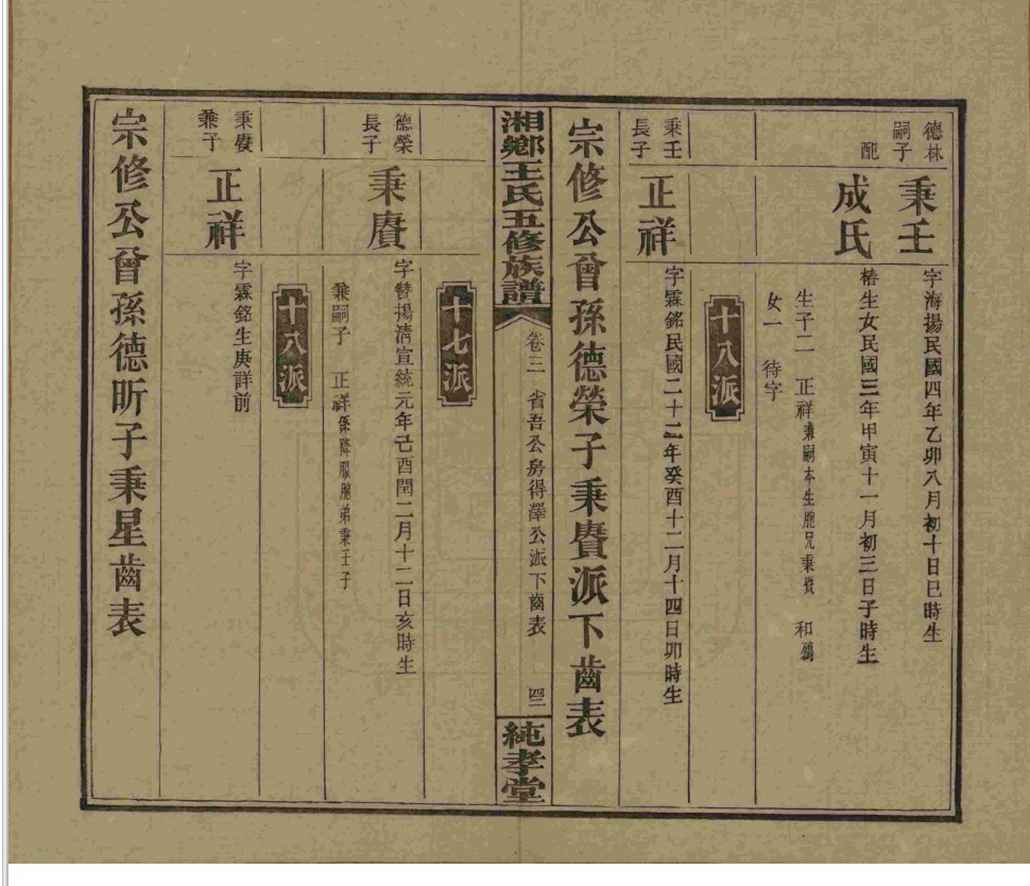 德林
嗣子
秉壬
字海揚民國四年乙卯八月初十日巳時生
配
成氏
椿生女民國三年甲寅十一月初三日子時生
生子二 正祥兼嗣本生胞兄秉賡 和鵠
女一 待字
十八派
秉壬
長子
正祥
字霖銘民國二十二年癸酉十二月十四日卯時生
宗修公曾孫德榮子秉賡派下齒表
湘鄉王氏五修族譜
卷三 省吾公房得澤公派下齒表 四二
純孝堂
十七派
德榮
長子
秉賡
字贊揚清宣統元年己酉閏二月十二日亥時生
兼嗣子 正祥係降服胞弟秉壬子
十八派
秉賡
兼子
正祥
字霖銘生庚詳前
宗修公曾孫德昕子秉星齒表